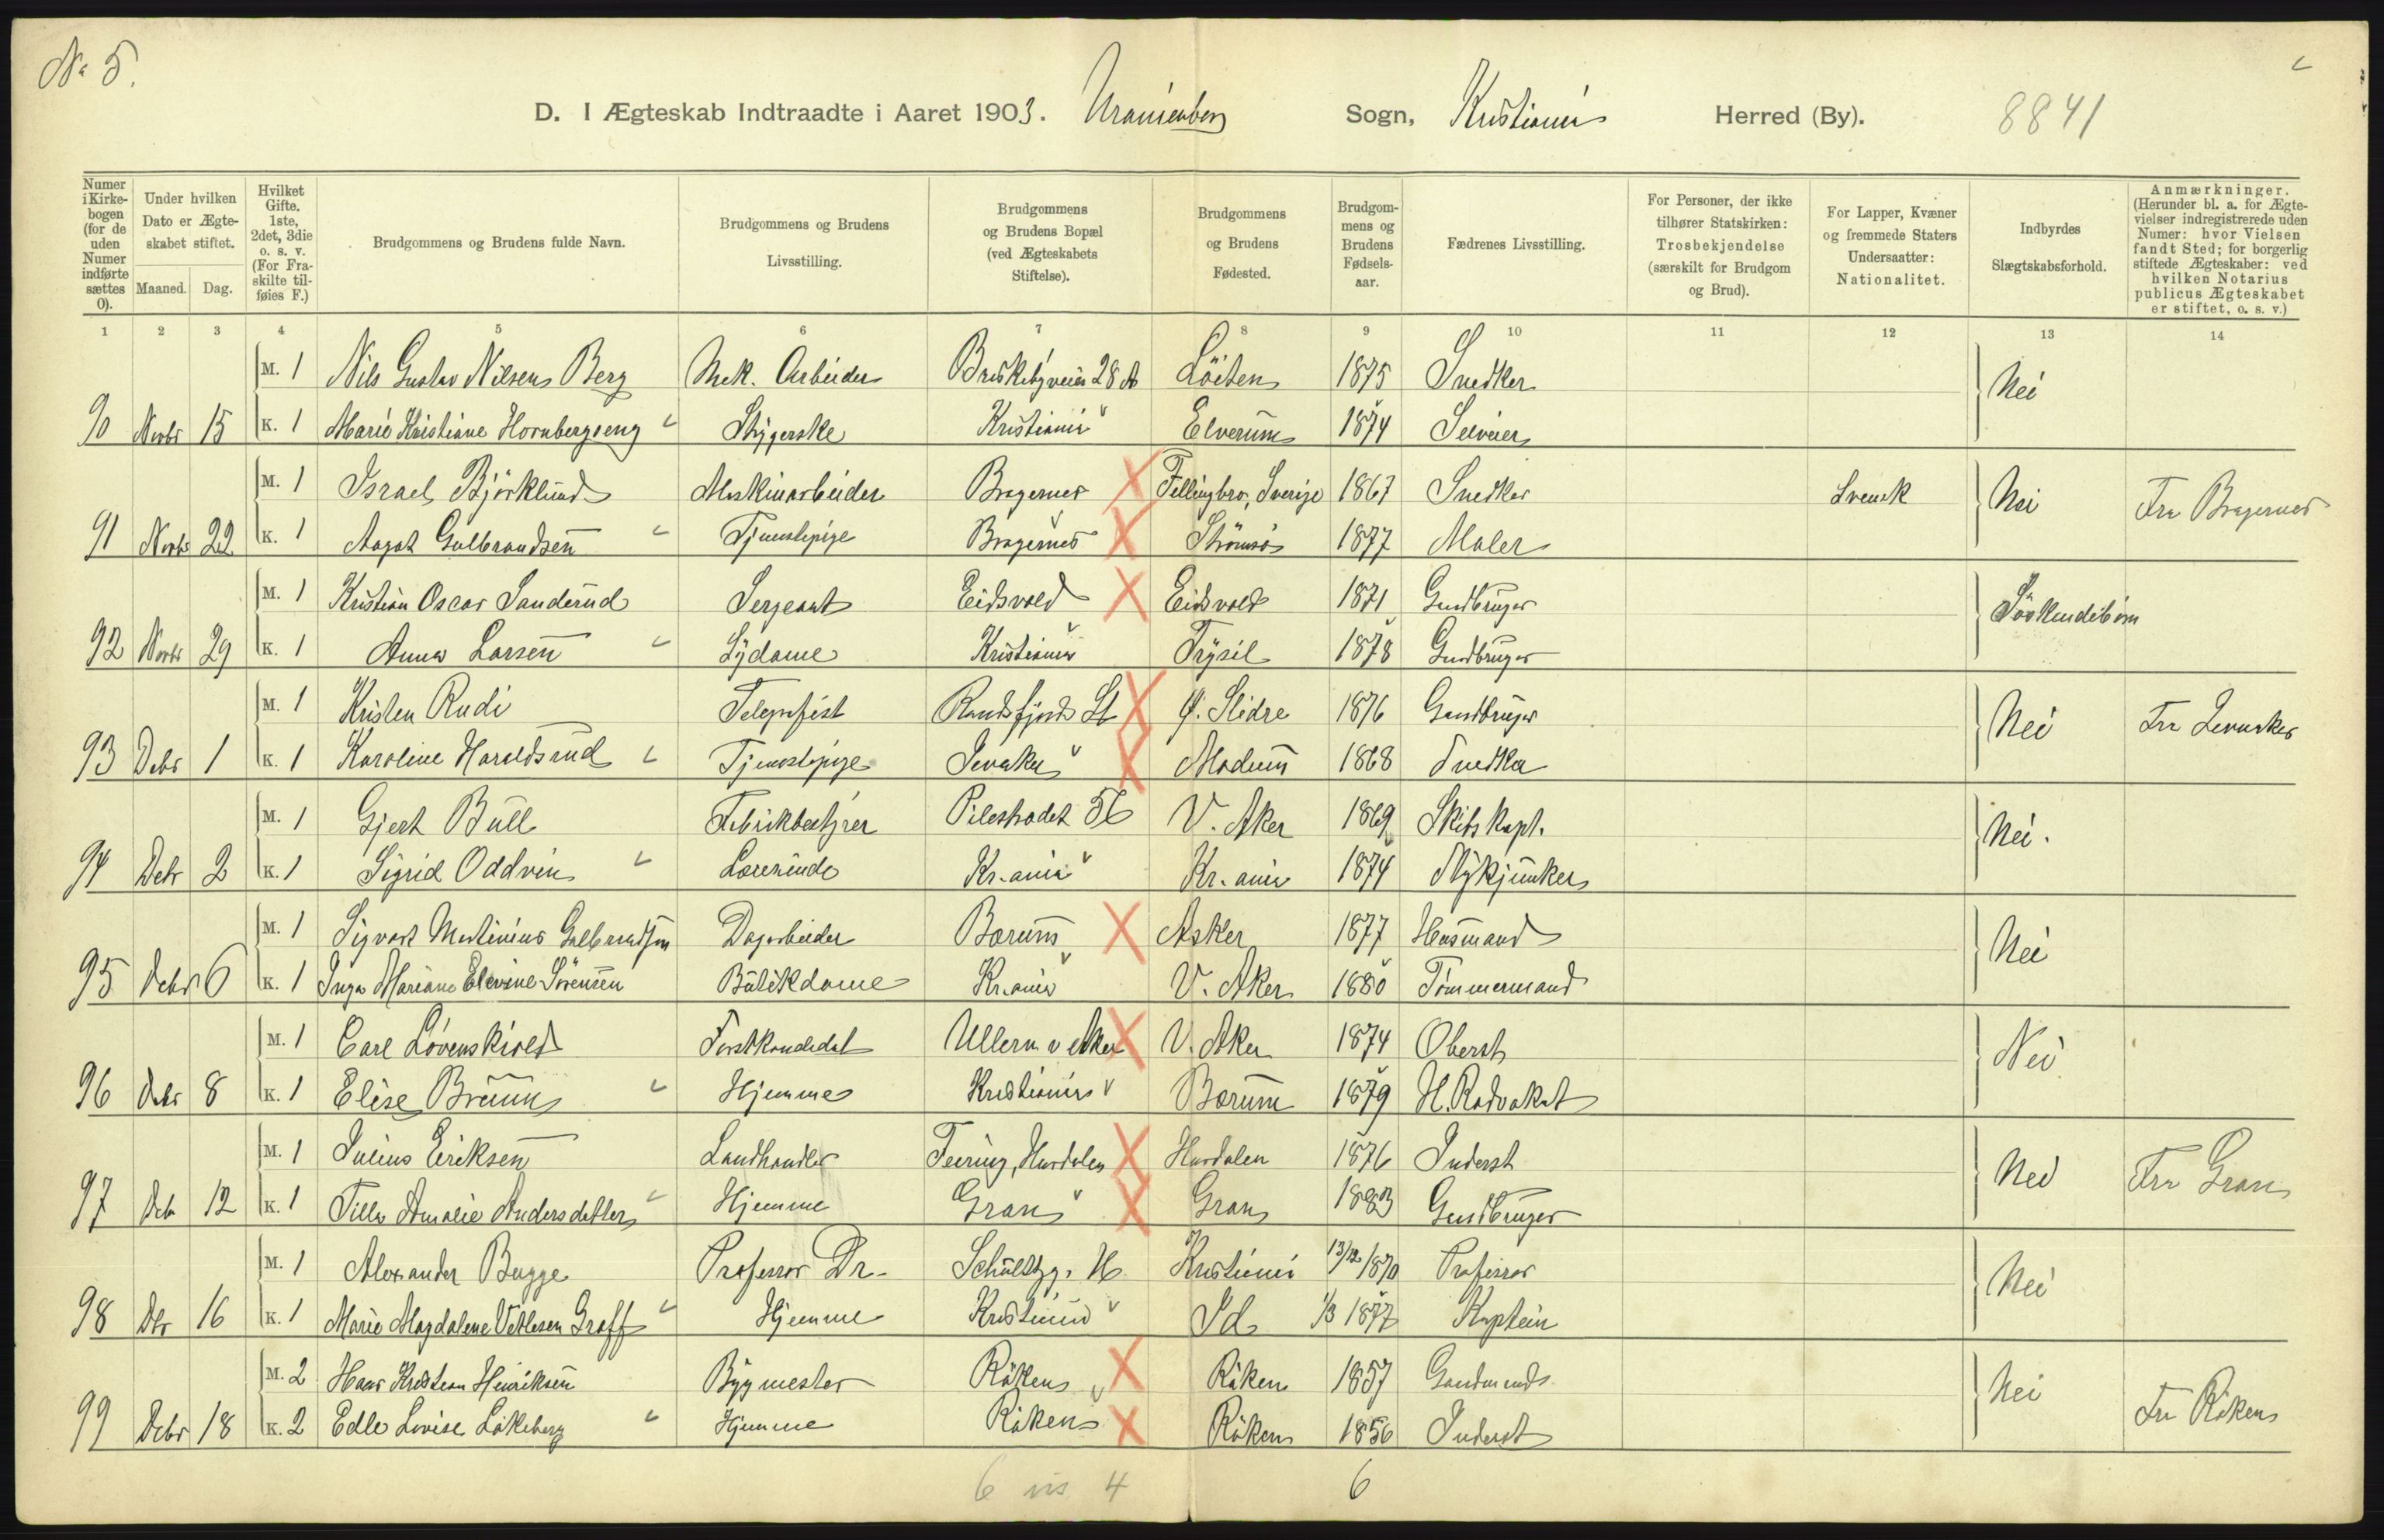 No 5.
D. I Ægteskab Indtraadte i Aaret 1903. Uranienborg Sogn, Kristiania Herred (By). 8841
Numer i Kirkebogen (for de uden Numer indførte sættes 0).
Under hvilken Dato er Ægteskabet stiftet.
Maaned. Dag.
Hvilket Gifte. 1ste, 2det, 3die o. s. v. (For Fraskilte tilføies F.)
Brudgommens og Brudens fulde Navn.
Brudgommens og Brudens Livsstilling.
Brudgommens og Brudens Bopæl (ved Ægteskabets Stiftelse).
Brudgommens og Brudens Fødested.
Brudgommens og Brudens Fødselsaar.
Fædrenes Livsstilling.
For Personer, der ikke tilhører Statskirken: Trosbekjendelse (særskilt for Brudgom og Brud).
For Lapper, Kvæner og fremmede Staters Undersaatter: Nationalitet.
Indbyrdes Slægtskabsforhold.
Anmærkninger. (Herunder bl. a. for Ægtevielser indregistrerede uden Numer: hvor Vielsen fandt Sted; for borgerlig stiftede Ægteskaber: ved hvilken Notarius publicus Ægteskabet er stiftet, o. s. v.)
1 2 3 4 5 6 7 8 9 10 11 12 13 14
M. 1 Nils Gustav Nilsen Berg Mek. Arbeider Briskebyveien 28 A Löiten 1875 Snedker Nei
90 Novbr 15 K. 1 Marie Kristiane Hornbergseng Strygerske Kristiania Elverum 1874 Selveier
M. 1 Israel Björklund Maskinarbeider Bragernes Fellingbro, Sverige 1867 Snedker Svensk Nei Fra Bragernes
91 Novbr 22 K. 1 Aagot Gulbrandsen Tjenestepige Bragernes Strömsö 1877 Maler
M. 1 Kristian Oscar Sanderud Sergeant Eidsvold Eidsvold 1871 Gaardbruger Söskendebörn
92 Novbr 29 K. 1 Anna Larsen Sydame Kristiania Trysil 1878 Gaardbruger
M. 1 Kristen Rudi Telegrafist Randsfjord St Ø. Slidre 1876 Gaardbruger Nei Fra Jevnaker
93 Debr 1 K. 1 Karoline Haraldsrud Tjenestepige Jevnaker Modum 1868 Snedker
M. 1 Gjert Bull Fabrikbestyrer Pilestrædet 56 V. Aker 1869 Skibskapt. Nei.
94 Debr 2 K. 1 Sigrid Oddvin Lærerinde Kr.ania Kr.ania 1874
M. 1 Sigvart Martinius Gulbrandsen Dagarbeider Bærum Asker 1877 Husmand Nei
95 Debr 6 K. 1 Inga Mariane Elevine Sörensen Butikdame Kr.ania V. Aker 1880 Tömmermand
M. 1 Carl Lövenskiold Forstkandidat Ullern v Aker V. Aker 1874 Oberst Nei
96 Debr 8 K. 1 Elise Bruun Hjemme Kristiania Bærum 1879 H. R advokat
M. 1 Julius Eriksen Landhandler Feiring, Hurdalen Hurdalen 1876 Inderst Nei Fra Gran
97 Deb 12 K. 1 Tilla Amalie Andersdatter Hjemme Gran Gran 1883 Gaardbruger
M. 1 Alexander Bugge Professor Dr. Schultzg. 16 Kristiania 13/12 1870 Professor Nei
98 Dbr 16 K. 1 Marie Magdalene Vetlesen Graff Hjemme Kristiania Id 1/3 1877 Kaptein
M. 2 Hans Kristian Henriksen Bygmester Röken Röken 1857 Gaardmand Nei Fra Röken
99 Debr 18 K. 2 Edle Lovise Lökeberg Hjemme Röken Röken 1856 Inderst
6 4 6